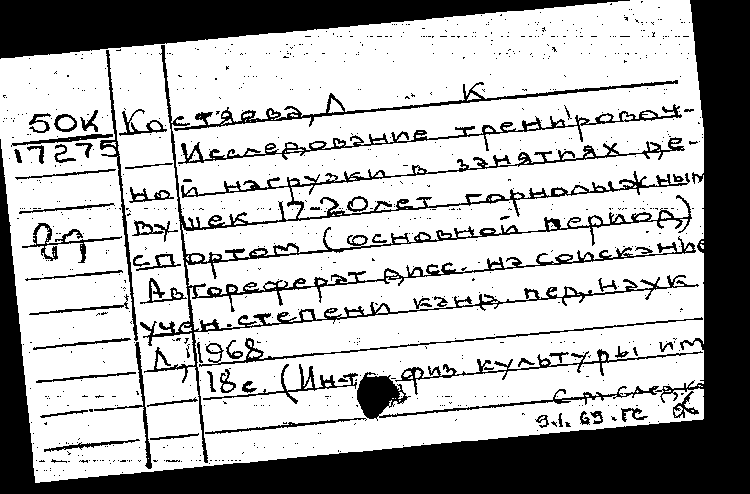 50К Костяева, Л К
17275 Исследование тренировоч-
ной нагрузки в занятиях де-
вушек 17-20 лет горнолыжным
спортом (основной период)
Автореферат дисс. на соискание
учен. степени канд. пед. наук
Л, 1968.
18с. (Ин-т физ. культуры им
см след к
9.1.69.